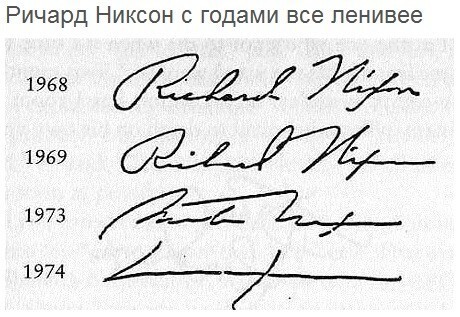 Ричард Никсон с годами все ленивее
1968 Richard Nixon
1969 Richard Nixon
1973
1974